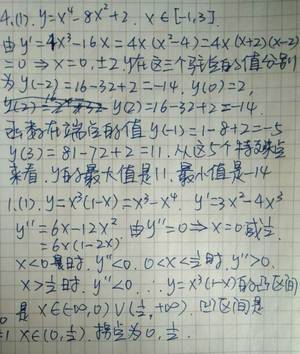 4.(1). y=x⁴-8x²+2. x∈[-1,3].
由y'=4x³-16x=4x(x²-4)=4x(x+2)(x-2)
=0 ⇒ x=0, ±2. y在这三个驻点的值分别
为 y(-2)=16-32+2=-14. y(0)=2,
y(2)=16-32+2=-14.
函数在端点的值 y(-1)=1-8+2=-5
y(3)=81-72+2=11. 从这5个特殊点
来看. y的最大值是11. 最小值是-14
1.(1). y=x³(1-x)=x³-x⁴. y'=3x²-4x³
y''=6x-12x² 由y''=0 ⇒ x=0或½.
=6x(1-2x)
x<0时. y''<0. 0<x<½时. y''>0.
x>½时. y''<0. ∴ y=x³(1-x)的凸区间
是 x∈(-∞,0)∪(½,+∞). 凹区间是
x∈(0,½). 拐点为0, ½.